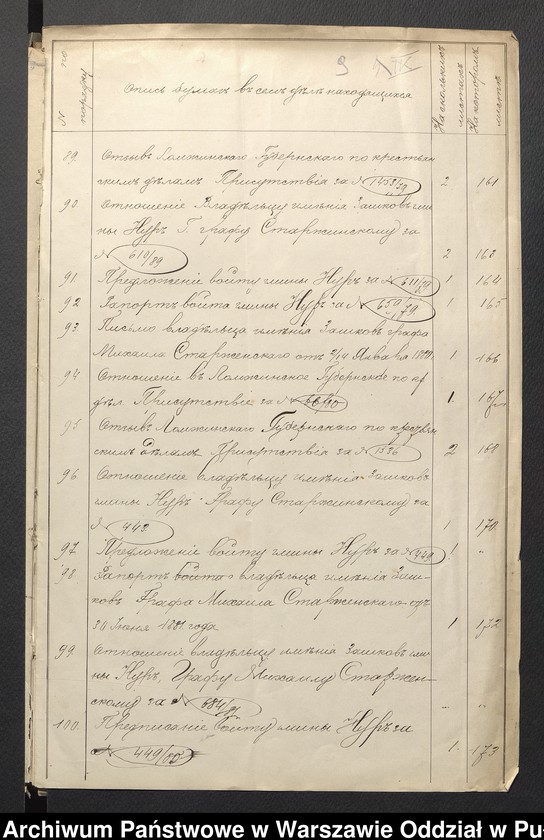 9
N по порядку
Опись бумагъ въ семъ дѣлѣ находящихся
На сколькихъ листахъ
На которомъ листѣ
89. Отзывъ Ломжинскаго Губернскаго по крестьян
скимъ дѣламъ Присутствія за N 1453/79 2 161
90 Отношеніе Владѣльцу имѣнія Зашковъ гми
ны Нуръ Г. графу Старженскому за
N 610/89 2 163
91 Предложеніе войту гмины Нуръ за N 611/79 1 164
92 Рапортъ войта гмины Нуръ за N 659/79 1 165
93. Письмо владѣльца имѣнія Зашковъ графа
Михаила Старженскаго отъ 2/14 Января 1 166
94 Отношеніе въ Ломжинское Губернское по кр
дѣл. Присутствіе за N 66/80 1. 167
95 Отзывъ Ломжинскаго Губернскаго по крестьян
скимъ дѣламъ Присутствія за N 1536 2 168
96 Отношеніе владѣльцу имѣнія Зашковъ
гмины Нуръ Графу Старженскому за
N 443 1 170
97. Предложеніе войту гмины Нуръ за N 449 1 "
98 Рапортъ войта владѣльца имѣнія Заш-
ковъ Графа Михаила Старженскаго отъ
30 Іюня 1881 года 1 172
99. Отношеніе владѣльцу имѣнія Зашковъ гми
ны Нуръ, Графу Михаилу Старжен-
скому за N 684/81 " "
100. Предписаніе войту гмины Нуръ за
N 449/80 1. 173
Archiwum Państwowe w Warszawie Oddział w Pu